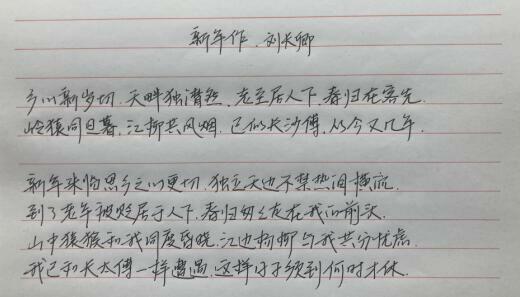 新年作.刘长卿
乡心新岁切,天畔独潸然,老至居人下,春归在客先.
岭猿同旦暮,江柳共风烟,已似长沙傅,从今又几年.
新年来临思乡之心更切,独立天边不禁热泪横流.
到了老年被贬居于人下,春归匆匆走在我的前头.
山中猿猴和我同度昏晓,江边杨柳与我共分忧虑.
我已和长太傅一样遭遇,这样日子须到何时才休.